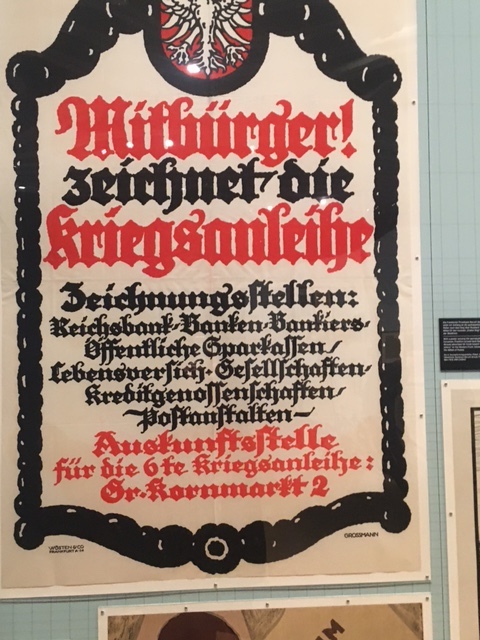 Mitbürger!
zeichnet die
Kriegsanleihe
Zeichnungsstellen:
Reichsbank-Banken-Bankiers-
Öffentliche Sparkassen/
Lebensversich.-Gesellschaften-
Kreditgenossenschaften/
Postanstalten—
Auskunftsstelle
für die 6te Kriegsanleihe:
Gr. Kornmarkt 2
WÜSTEN & CO
FRANKFURT A-M
GROSSMANN